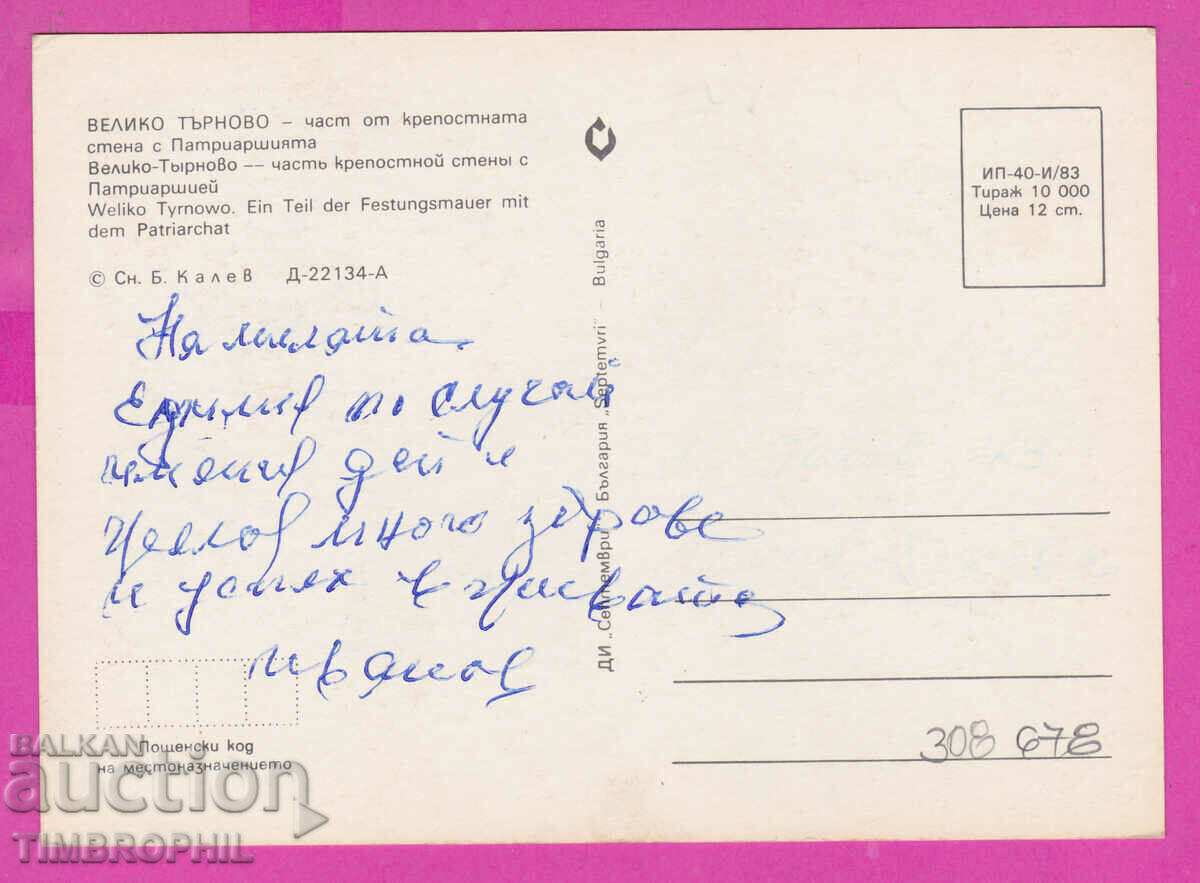 ВЕЛИКО ТЪРНОВО – част от крепостната
стена с Патриаршията
Велико-Тырново –– часть крепостной стены с
Патриаршией
Weliko Tyrnowo. Ein Teil der Festungsmauer mit
dem Patriarchat
© Сн. Б. Калев Д-22134-А
На милата
Емилия по случай
имения ден и
много здраве
и успех в
ДИ „Септември" България „Septemvri" – Bulgaria
ИП-40-И/83
Тираж 10 000
Цена 12 ст.
308 678
Пощенски код
на местоназначението
BALKAN
auction
TIMBROPHIL